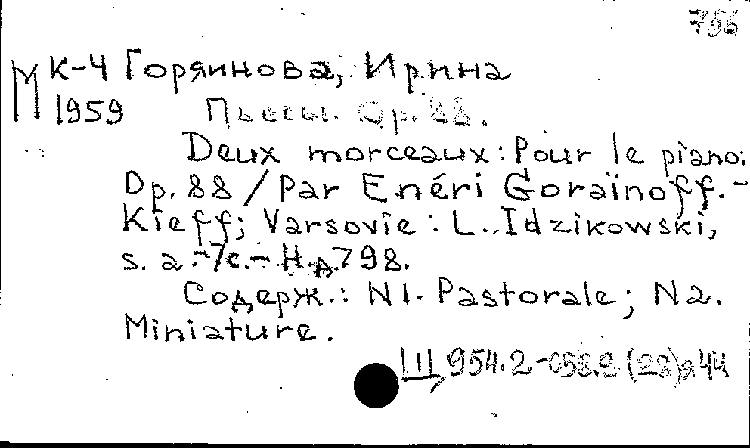 756
М К-4 Горяинова, Ирина
1959 Пьесы. Op. 88.
Deux morceaux: Pour le piano.
Op. 88 / Par Enéri Goraïnoff. -
Kieff; Varsovie: L. Idzikowski,
s. a. - 7с. - Н.д. 798.
Содерж.: N1. Pastorale; N2.
Miniature.
Ш 954.2-058.2 (28)я44